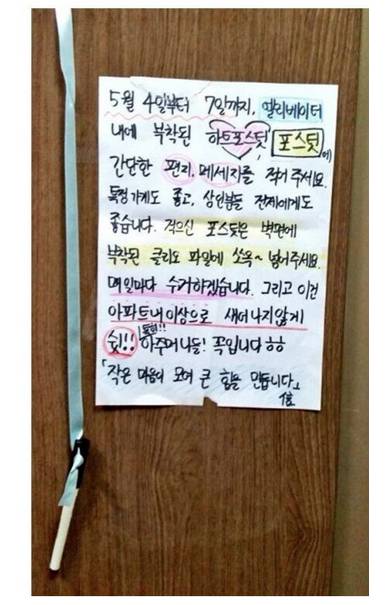 5월 4일부터 7일까지, 엘리베이터
내에 부착된 하트포스팃, 포스팃에
간단한 편지, 메세지를 적어 주세요.
특정가게도 좋고, 상인분들 전체에게도
좋습니다. 적으신 포스팃은 벽면에
부착된 클리도 파일에 쏘옥~ 넣어주세요.
매일마다 수거하겠습니다. 그리고 이건
아파트내 이상으로 새어나가지않게
쉿!! 특현!! 아주머니들! 꼭입니다 ㅎㅎ
「작은 마음이 모여 큰 힘을 만듭니다」